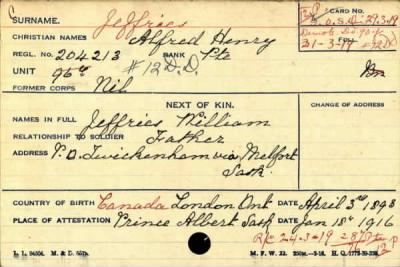 SURNAME. Jeffries CARD NO.
CHRISTIAN NAMES Alfred Henry S.O.S. Di 29.3.19
REGL. NO. 204213 RANK Pte Demob
UNIT 96th #12 D.D. 31-3-19 FOLL.
FORMER CORPS Nil
NEXT OF KIN. CHANGE OF ADDRESS
NAMES IN FULL Jeffries William
RELATIONSHIP TO SOLDIER Father
ADDRESS P.O. Twickenham via Melfort
Sask.
COUNTRY OF BIRTH Canada London Ont DATE April 3rd 1898
PLACE OF ATTESTATION Prince Albert Sask DATE Jan 18th 1916
R/C 24-3-19
L. L. 94604. M. & D. M. F. W. 22. H. Q. 1772-39-339.